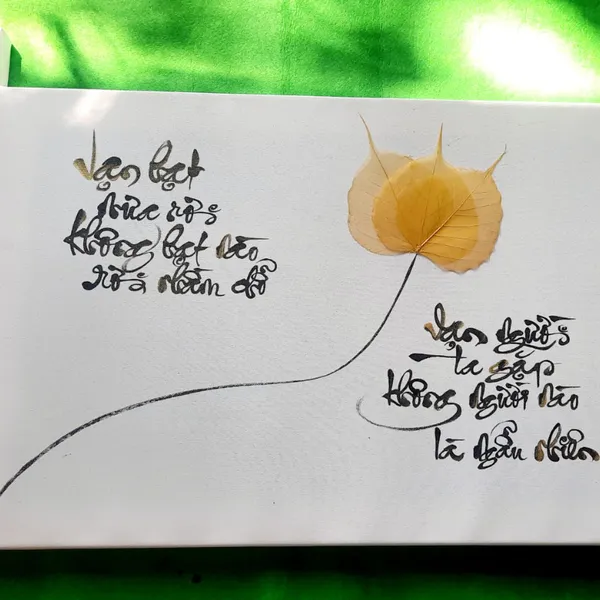 Vạn hạt
mưa rơi
không hạt nào
rơi nhầm chỗ
Vạn người
ta gặp
không người nào
là ngẫu nhiên